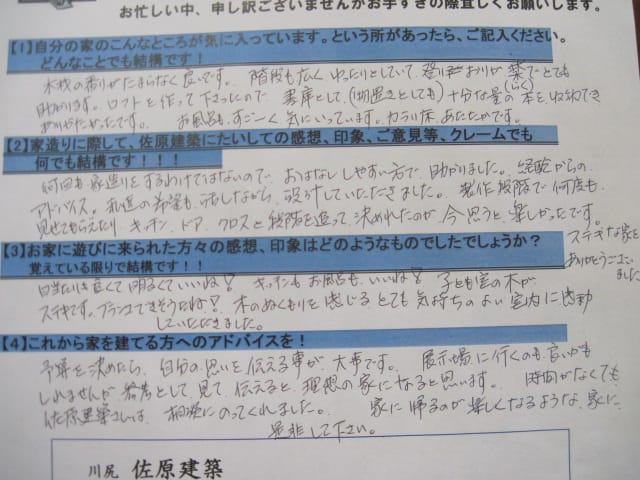 お忙しい中、申し訳ございませんがお手すきの際宜しくお願いします。
【1】自分の家のこんなところが気に入っています。という所があったら、ご記入ください。
どんなことでも結構です！
木材の香りがたまらなく良いです。 階段も広く ゆったりとしていて、登り おりが 楽(らく)で とても
助かります。ロフトを作って下さったので 書庫として、(物置きとしても) 十分な量の本を収納でき
ありがたかったです。 お風呂も すごーく 気にいっています。カラリ床、あたたかです。
【2】家造りに際して、佐原建築にたいしての感想、印象、ご意見等、クレームでも
何でも結構です！！！
何回も家造りをするわけではないので、お話しやすい方で、助かりました。経験からの
アドバイス。私達の希望も 話しながら、設計していただきました。 製作段階で何度も
見せてもらえたり キッチン、ドア、クロスと段階を追って 決めれたのが 今思うと 楽しかったです。
【3】お家に遊びに来られた方々の感想、印象はどのようなものでしたでしょうか？
覚えている限りで結構です！！
ステキな家を
ありがとうございました
日当たりも良くて明るくていいね！ キッチンも お風呂も いいね！ 子ども室の木が
ステキです。ブランコできそうだね！ 木のぬくもりを感じる とても 気持ちの よい 室内に 感動
していただきました。
【4】これから家を建てる方へのアドバイスを！
予算を決めたら、自分の思いを伝える事が 大事です。 展示場に行くのも 良いかも
しれませんが 参考として、見て、伝えると、理想の家になると思います。 時間がなくても
佐原建築さんは、相談にのってくれました。 家に帰るのが 楽しくなるような 家に
是非して下さい。
川尻 佐原建築